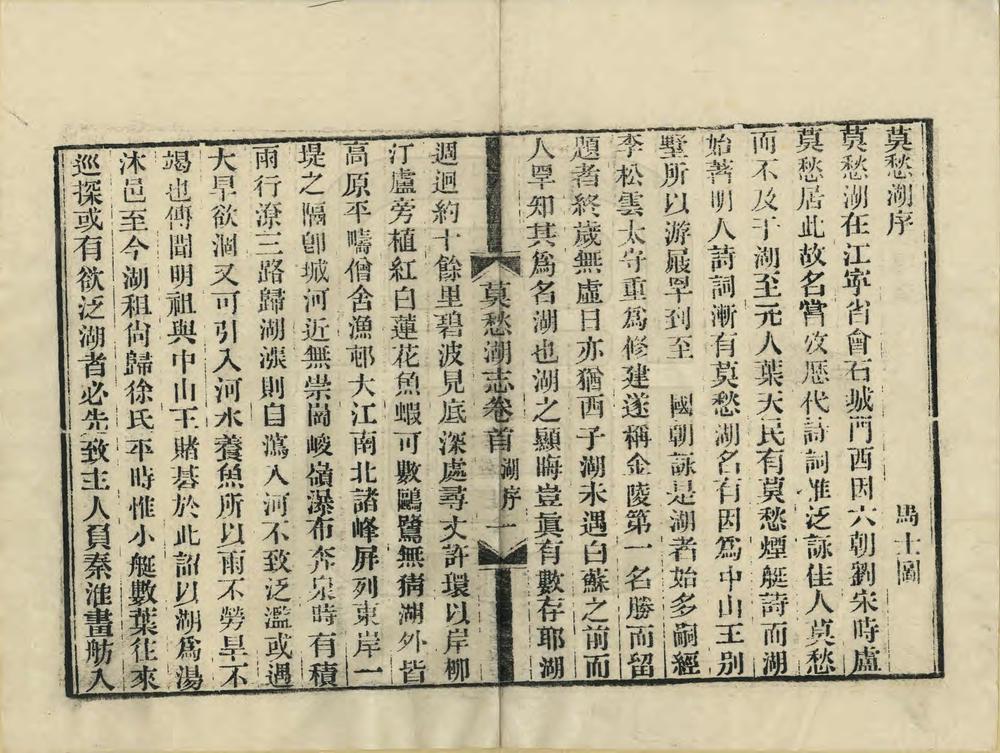 莫愁湖序
馬士圖
莫愁湖在江寧省會石城門西因六朝劉宋時盧
莫愁居此故名嘗攷歷代詩詞准泛詠佳人莫愁
而不及于湖至元人葉天民有莫愁煙艇詩而湖
始著明人詩詞漸有莫愁湖名有因為中山王別
墅所以游屐罕到至 國朝詠是湖者始多嗣經
李松雲太守重為修建遂稱金陵第一名勝而留
題者終歲無虛日亦猶西子湖未遇白蘇之前而
人罕知其為名湖也湖之顯晦豈眞有數存耶湖
莫愁湖志卷首 湖序 一
週迴約十餘里碧波見底深處尋丈許環以岸柳
汀蘆旁植紅白蓮花魚蝦可數鷗鷺無猜湖外皆
高原平疇僧舍漁邨大江南北諸峰屏列東岸一
堤之隔卽城河近無崇崗峻嶺瀑布奔泉時有積
雨行潦三路歸湖漲則自瀉入河不致泛濫或遇
大旱欲涸又可引入河水養魚所以雨不勞旱不
竭也傳聞明祖與中山王賭碁於此詔以湖為湯
沐邑至今湖租尙歸徐氏平時惟小艇數葉往來
巡探或有欲泛湖者必先致主人員秦淮畫舫入